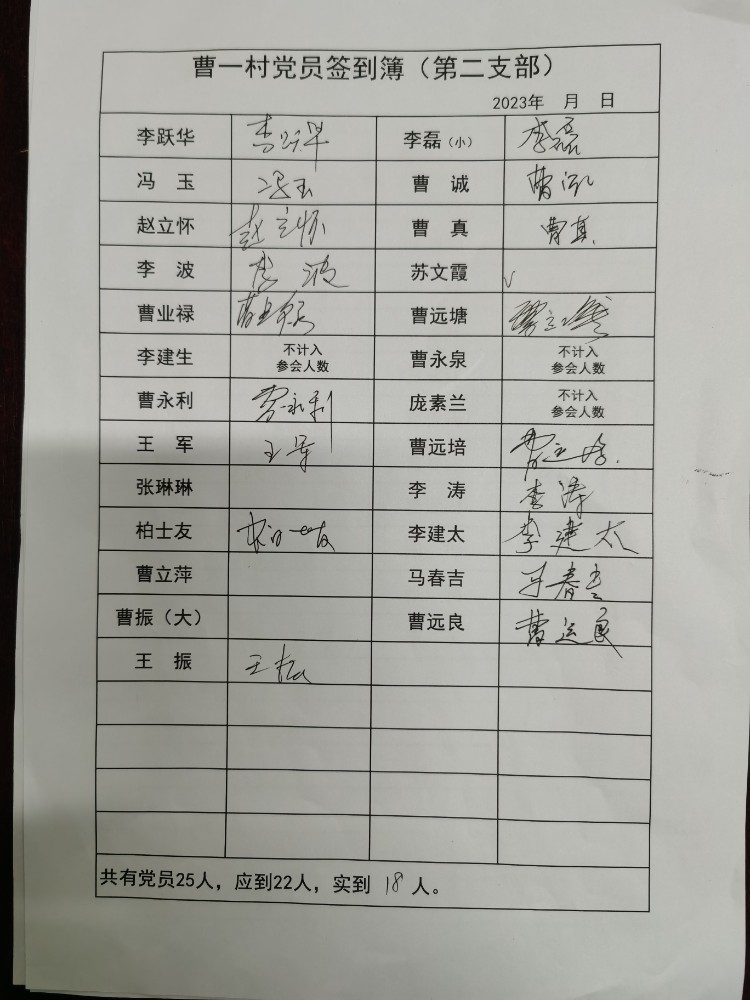 曹一村党员签到簿（第二支部）
2023年 月 日
李跃华 李跃华 李磊（小） 李磊
冯 玉 冯玉 曹 诚 曹诚
赵立怀 赵立怀 曹 真 曹真
李 波 李波 苏文霞 √
曹业禄 曹业禄 曹远塘 曹远塘
李建生 不计入 曹永泉 不计入
参会人数 参会人数
曹永利 曹永利 庞素兰 不计入
参会人数
王 军 王军 曹远培 曹远培
张琳琳 李 涛 李涛
柏士友 柏士友 李建太 李建太
曹立萍 马春吉 马春吉
曹振（大） 曹远良 曹远良
王 振 王振
共有党员25人，应到22人，实到 18 人。